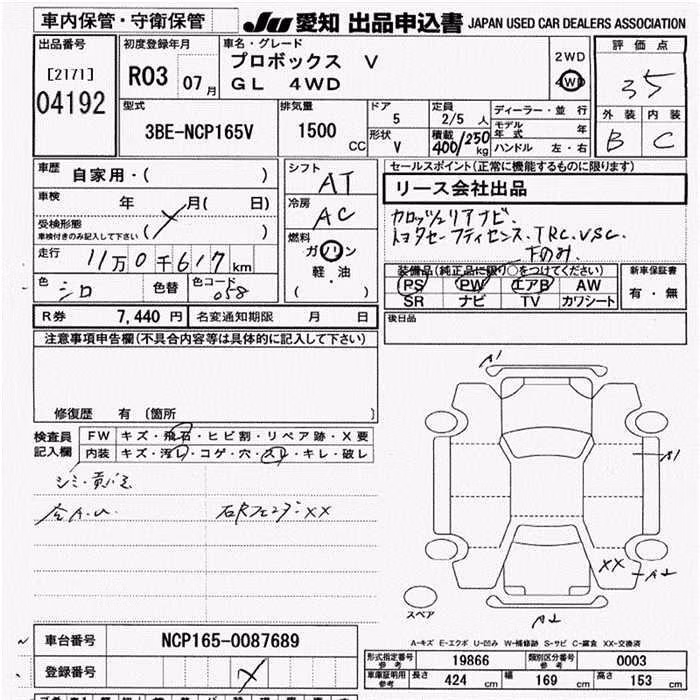 車内保管・守衛保管
JU 愛知 出品申込書 JAPAN USED CAR DEALERS ASSOCIATION
出品番号
[2171]
04192
初度登録年月
R03 07月
車名・グレード
プロボックス V
GL 4WD
2WD
4WD
評価点
3.5
外装 内装
B C
型式
3BE-NCP165V
排気量
1500 CC
ドア
5
形状
V
定員
2/5 人
積載
400/250 kg
ディーラー・並行
モデル年式 年
ハンドル 左・右
車歴
自家用・( )
車検 年 月( 日)
受検形態
車検付きのみ記入して下さい ( )
走行
11万0千617km
色
シロ
色替
色コード
058
シフト
AT
冷房
AC
燃料
ガソリン
軽・油
( )
セールスポイント(正常に機能するものに限ります)
リース会社出品
カロッツェリアナビ.
トヨタセーフティセンス.TRC.VSC.
下のみ.
装備品(純正品に限り○をつけてください)
PS PW エアB AW
SR ナビ TV カワシート
新車保証書
有・無
R券 7,440円 名変通知期限 月 日
後日品
注意事項申告欄(不具合内容等は具体的に記入して下さい)
修復歴 有〔箇所
検査員記入欄
FW キズ・飛石・ヒビ割・リペア跡・X要
内装 キズ・汚レ・コゲ・穴・スレ・キレ・破レ
シミ・黄バミ
A.U. 右Rフェンダ・XX
A1
A1
XX
A2
A2
スペア
A-キズ E-エクボ U-凹み W-補修跡 S-サビ C-腐食 XX-交換済
車台番号 NCP165-0087689
登録番号
形式指定番号 参考 19866 類別区分番号 参考 0003
車庫証明用 参考 長さ 424 cm 幅 169 cm 高さ 153 cm